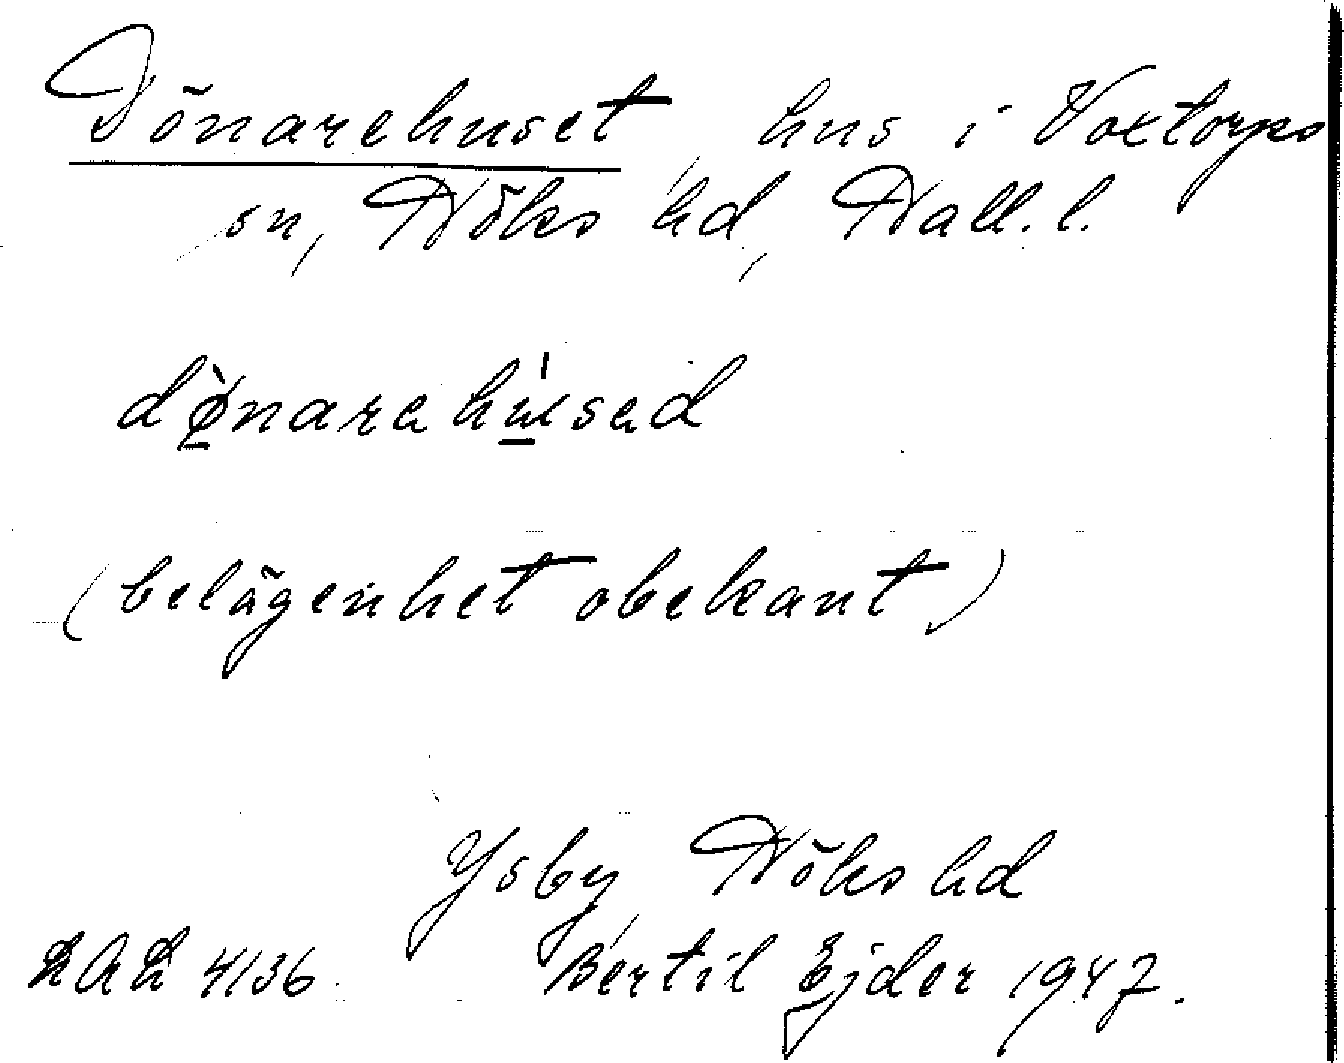 Dönarehuset, hus i Voxtorps
sn, Höks hd, Hall. l.
dø̀narahúsad
(belägenhet obekant)
Ysby, Höks hd
LAL 4136. Bertil Ejder 1947.